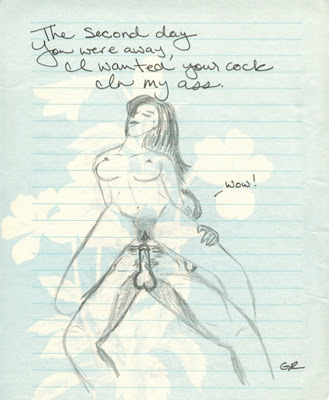 The second day
You were away,
I wanted your cock
In my ass.
wow!
GR